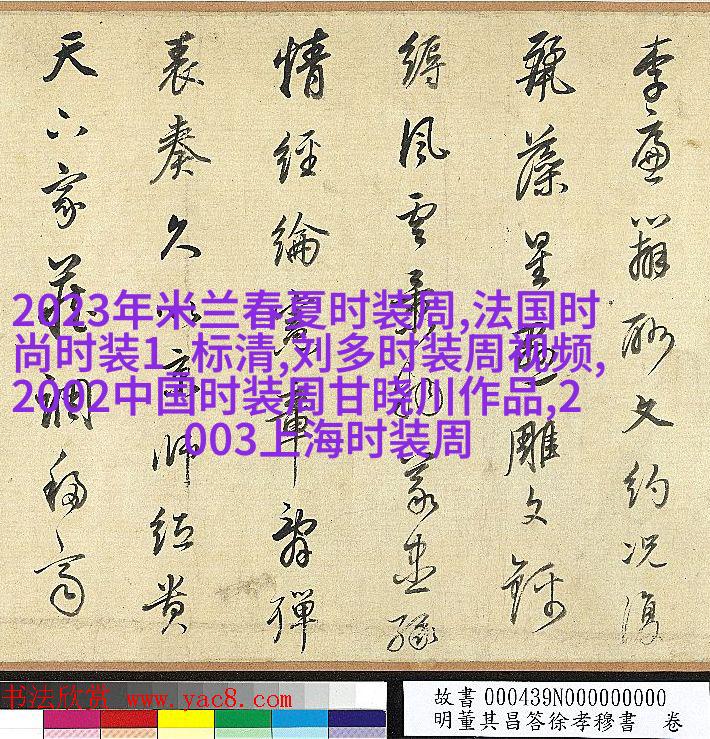 2023年米兰春夏时装周,法国时
尚时装1_标清,刘多时装周视频,
2002中国时装周甘晓川作品,2
003上海时装周
李辯酌文約況復
麗藻星雕文錦
縟風雲義盡緣
情經綸憲章辭殫
表奏久以京師紙貴
天下家藏調移齊
书法欣赏 www.yac8.com
故書 000439N000000000
明董其昌答徐孝穆書 卷